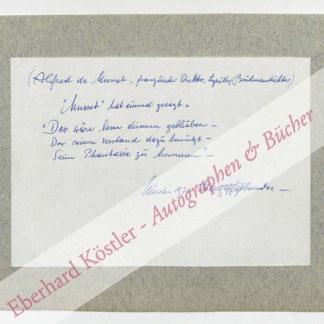 (Alfred de Musset, französischer Dichter, Lyriker, Bühnendichter)
"Musset" hat einmal gesagt =
"Der wäre besser dumm geblieben –
Der seinen Verstand dazu benützt –
Seine Phantasie zu hemmen" –
München
Eberhard Köstler - Autographen & Bücher